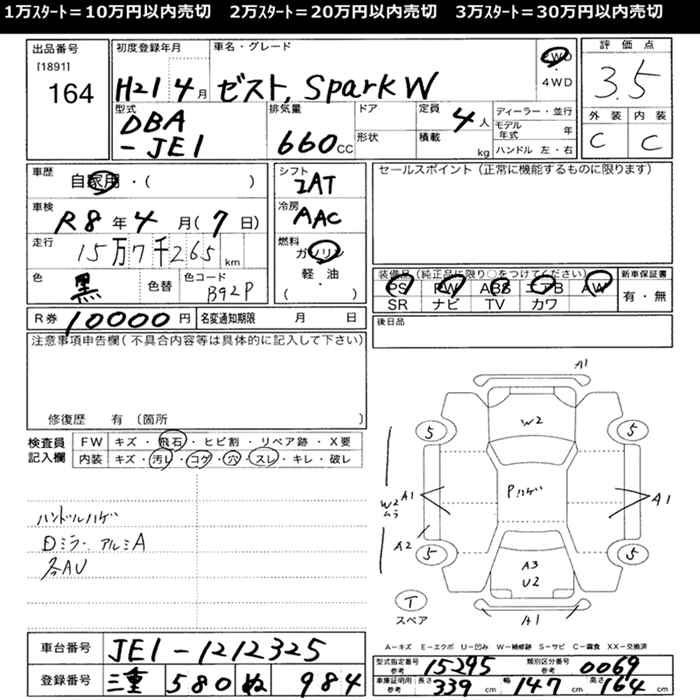 1万スタート＝10万円以内売切　2万スタート＝20万円以内売切　3万スタート＝30万円以内売切
出品番号
[1891]
164
初度登録年月
H21 4月
車名・グレード
ゼスト, Spark W
2WD
・4WD
評価点
3.5
外装 内装
C C
型式
DBA
-JE1
排気量
660cc
ドア
形状
定員
4人
積載
kg
ディーラー・並行
モデル年式 年
ハンドル 左・右
車歴
自家用・( )
車検
R8年4月(7日)
走行
15万7千265km
色
黒
色替
色コード
B92P
シフト
2AT
冷房
AAC
燃料
ガソリン
軽・油
( )
セールスポイント（正常に機能するものに限ります）
装備品（純正品に限り○をつけてください）
PS PW ABS エアB AW
SR ナビ TV カワ
新車保証書
有・無
R券 10000円
名変通知期限 月 日
後日品
注意事項申告欄（不具合内容等は具体的に記入して下さい）
修復歴 有〔箇所
検査員記入欄
FW キズ・飛石・ヒビ割・リペア跡・X要
内装 キズ・汚レ・コゲ・穴・スレ・キレ・破レ
ハンドルハゲ
Dミラー・アルミA
各AU
A1
W2
5 5
Pハゲ
W2
ムラ
A1
A1
A2
5 5
A3
U2
T
スペア
A1
A－キズ E－エクボ U－凹み W－補修跡 S－サビ C－腐食 XX－交換済
車台番号 JE1-1212325
登録番号 三重 580 ぬ 984
型式指定番号 参考 15295
類別区分番号 参考 0069
車庫証明用 参考 長さ 339cm 幅 147cm 高さ 164cm